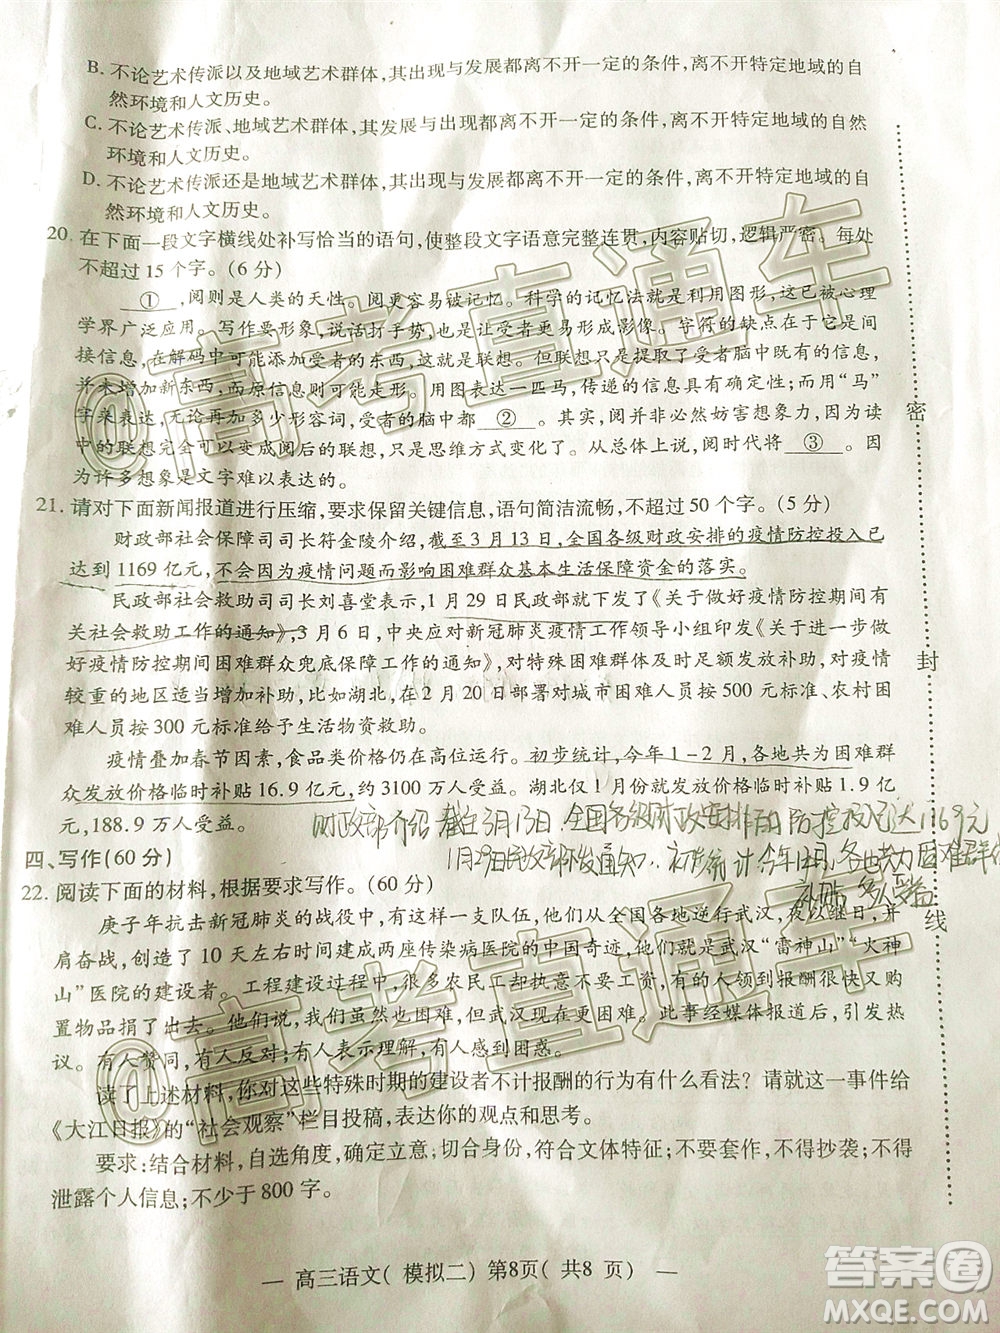 B. 不论艺术传派以及地域艺术群体，其出现与发展都离不开一定的条件，离不开特定地域的自
然环境和人文历史。
C. 不论艺术传派、地域艺术群体，其发展与出现都离不开一定的条件，离不开特定地域的自然
环境和人文历史。
D. 不论艺术传派还是地域艺术群体，其发展和出现都离不开一定的条件，离不开特定地域的自
然环境和人文历史。
20. 在下面一段文字横线处补写恰当的语句，使整段文字语意完整连贯，内容贴切，逻辑严密。每处
不超过 15 个字。(6 分)
①，阅则是人类的天性。阅更容易被记忆。科学的记忆法就是利用图形，这已被心理
学界广泛应用。写作要形象，说话打手势，都是为了让受者更容易形成影像。字符的缺点在于是间
接信息，在解码中可能添加受者的东西，因此尽管使用了更多的字符，却只是提取了受者脑中既有的信息，
并未增加新东西，而原信息则可能走形。用图表达一匹马，传递的信息具体而准确；而用“马”
字来表达，无论再加多少形容词，受者的脑中都②。其实，阅并非必然妨害想象力，因为读
中的联想完全可以变成阅后的联想，只是思维方式变化了。从总体上说，阅时代将③，因
为许多想象是文字难以表达的。
21. 请对下面新闻报道进行压缩，要求保留关键信息，语句简洁流畅，不超过 50 个字。(5 分)
财政部社会保障司司长符金陵介绍，截至 3 月 13 日，全国各级财政安排的疫情防控投入已
达到 1169 亿元，不会因为疫情问题而影响困难群众基本生活保障资金的落实。
民政部社会救助司司长刘喜堂表示，1 月 29 日民政部就下发了《关于做好疫情防控期间有
关社会救助工作的通知》，3 月 6 日，中央应对新冠肺炎疫情工作领导小组印发《关于进一步做
好疫情防控期间困难群众兜底保障工作的通知》，对特殊困难群体及时足额发放补助，对疫情
较重的地区适当增加补助，比如湖北，在 2 月 20 日部署对城市困难人员按 500 元标准、农村困
难人员按 300 元标准给予生活物资救助。
疫情叠加春节因素，食品类价格仍在高位运行。初步统计，今年 1－2 月，各地共为困难群
众发放价格临时补贴 16.9 亿元，约 3100 万人受益。湖北仅 1 月份就发放价格临时补贴 1.9 亿
元，188.9 万人受益。
财政部介绍 截至3月13日 全国各级财政安排的防控投入已达1169元
1月29日民政部下发通知. 初步统计今年1-2月,各地为困难群众
补贴 多人受益
四、写作(60 分)
22. 阅读下面的材料，根据要求写作。(60 分)
庚子年抗击新冠肺炎的战役中，有这样一支队伍，他们从全国各地逆行武汉，夜以继日，并
肩奋战，创造了 10 天左右时间建成两座传染病医院的中国奇迹，他们就是武汉“雷神山”“火神
山”医院的建设者。工程建设过程中，很多民工却执意不要工资，更有甚者，将获得的报酬购
置物品捐了出去。他们说，我虽然也困难，但武汉现在更困难。此事经媒体报道后，引发热
议。有人赞同，有人反对；有人表示理解，有人感到困惑。
读了上述材料，你对这些特殊时期的建设者不计报酬的行为有什么看法？请就这一事件给
《大江日报》的“社会观察”栏目投稿，表达你的观点和思考。
要求：结合材料，自选角度，确定立意；切合身份，符合文体特征；不要套作，不得抄袭；不得
泄露个人信息；不少于 800 字。
— 高三语文( 模拟二) 第8页( 共8 页) —
密
封
线
@高考直通车
@高考直通车
答案圈
MXQE.COM